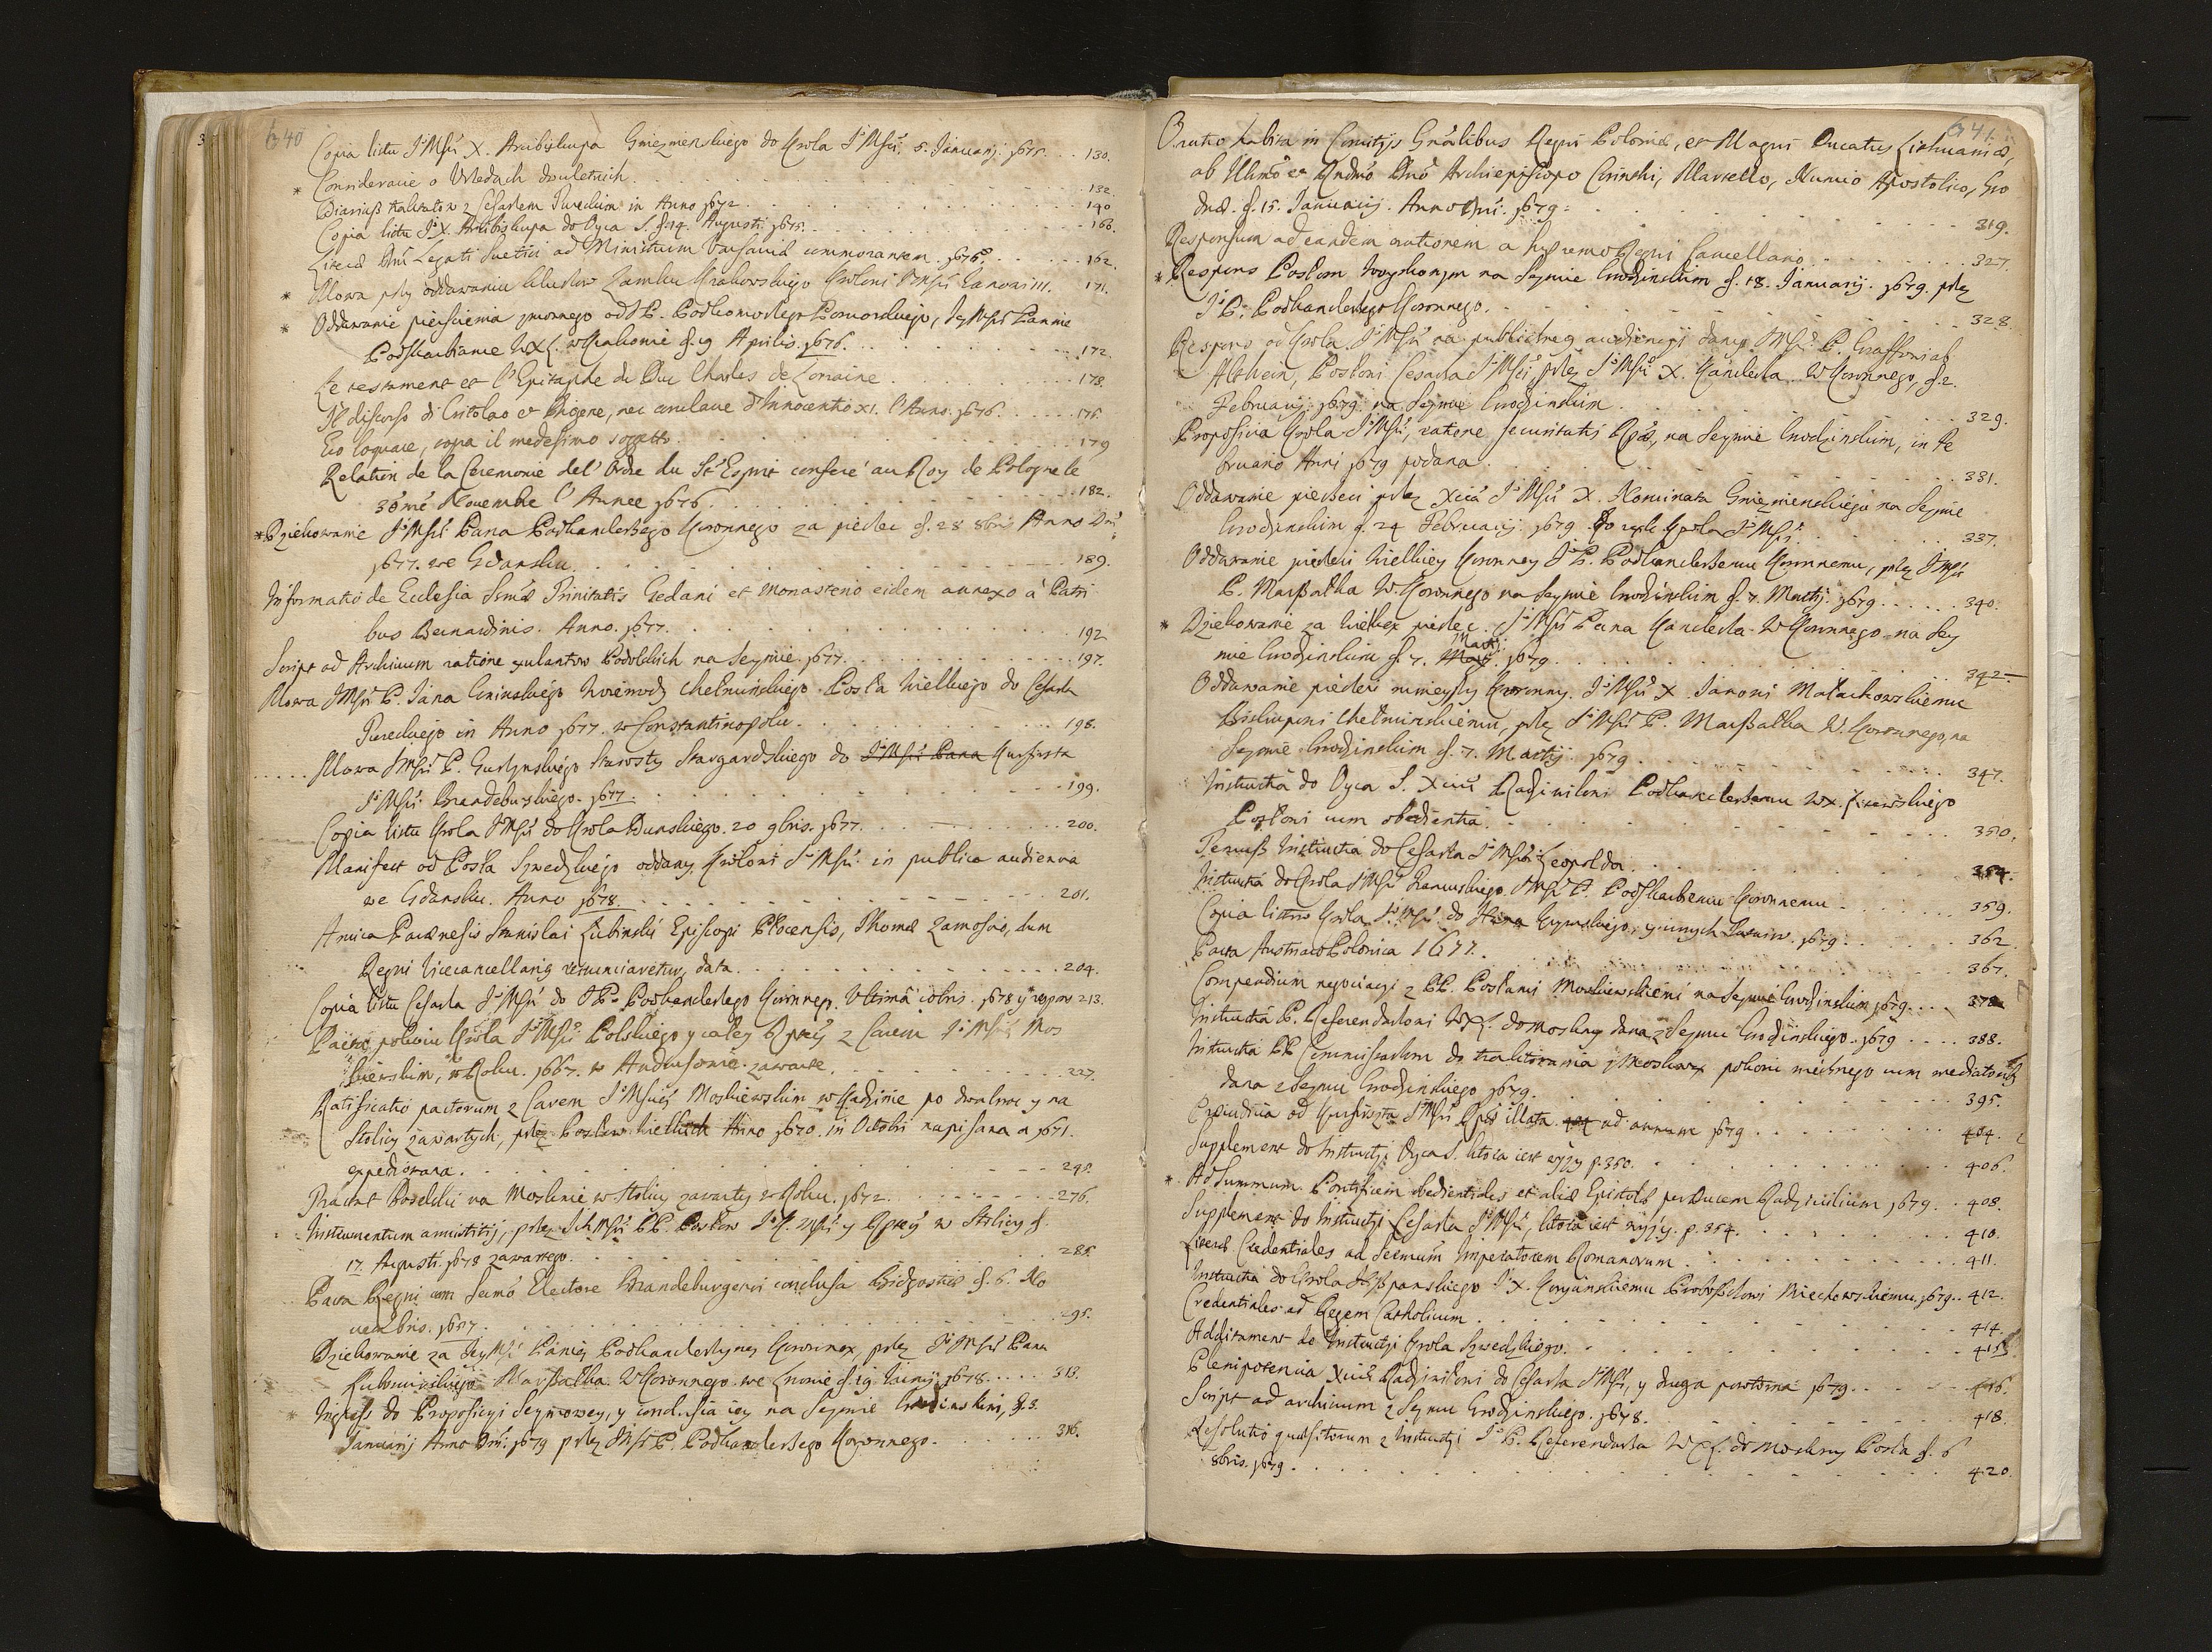 640
Copia listu JeMśći X. Arcibiskupa Gnieznienskiego do Krola JeMśći, 5. Januarij. 1675. . . 130.
* Consideratie o Urzedach dwuletnich. . . . 132.
Diariusz traktatow z Cesarzem Tureckim in Anno 1672 . . . 140
Copia listu Je X. Arcibiskupa do Oyca S. d. 14. Augusti. 1675. . . . 166.
Literæ Dnı Legati Suetici ad Ministrum Varsaviæ commorantem. 1676. . . . 162.
* Mowa przy oddawaniu kluczow Zamku Krakowskiego Krolowi JeMśći Janowi III. 171.
* Oddawanie pierscienia zmownego od JP. Podkomorzego Pomorskiego, Jey Mśći Pannie
Podskarbiance WXL. w Krakowie d. 19 Aprilis. 1676. . . . 172.
Le testament et l'Epitaphe du Duc Charles de Lorraine . . . 173.
Il discorso di Critolao et Digene, nec conclave d'Innocentio XI. l'Anno. 1676. . . . 175.
Eco loquace, copra il medesimo sogetto. . . . 179
Relation de la Ceremonie del' Ordre du St Esprit conferé au Roy de Pologne le
30me Novembre l'Annee 1676. . . . 182.
* Dziekowanie JeMśći Pana Podkanclerzego Koronnego za pieczec d. 28 8bris Anno Dni
1677. we Gdansku. . . . 189.
Informatio de Ecclesia Ssmæ Trinitatis Gedani et monasterio eidem annexo à Patri
bus Bernardinis. Anno. 1677. . . . 192
Script ad Archivum ratione exulantow Podolskich na Seymie. 1677. . . . 197.
Mowa JMści P. Jana Gninskiego Woiewody Chełminskiego Posła Wielkiego do Cesarza
Tureckiego in Anno 1677. w Constantinopolu. . . . 198.
. . . . . Mowa JMści P. Gurzynskiego Starosty Stargardzkiego do JeMśći Pana Kurfirszta
JeMśći Brandeburskiego. 1677. . . . 199.
Copia listu Krola JMści do Krola Dunskiego. 20 9bris. 1677. . . . 200.
Manifest od Posła Szwedzkiego oddany Krolowi JeMśći in publica audientia
we Gdansku. Anno 1678. . . . 201.
Amica Parænesis Stanislai Lubinski Episcopi Plocensis, Thomæ Zamoscio, dum
Regni Vicecancellarig renunciaretur, data. . . . 204.
Copia listu Cesarza JeMśći do JP. Podkanclerzego Koronnego. Ultimâ iobris. 1678 y respons 213.
Pacta pokoiu Krola JeMśći Polskiego y całey Rptey z Carem JeMśći Mos
kiewskim, w Roku. 1667. w Andrusowie zawarte. . . . 227.
Ratificatio pactorum z Carem JeMśći Moskiewskim w Kadzinie po dwakroc y na
Stolicy zawartych, przez Posłow Wielkich Anno 1670. in Octobri napisana a 1671.
expediowana. . . . 245.
Tractat Poselski na Moskwie w Stolicy zawarty w Roku. 1672. . . . 276.
Instrumentum armistitij, przez Ich Mśći PP. Posłow J.K. Mśći y Rptey w Stolicy d.
17. Augusti. 1678 zawartego. . . . 285.
Pacta Regni cum Ssmo Electore Brandeburgensi conclusa Bidgostiæ d. 6. No
vembris. 1657. . . . 295.
Dziekowanie za Jey Mśći Panią Podkanclerzynę Koronnex, przez JeMśći Pana
Lubomirskiego Marszałka W Koronnego. we Lwowie d. 19. Junij 1678. . . . . 313.
* Ingress do Propositiyi Seymowey, y conclusia iey na Seymie Grodzinskim, d. 3.
Januarij Anno Dni. 1679 przez JMści P. Podkanclerzego Koronnego. . . . 316.
641.
Oratio habita in Comitijs Gnãlibus Regni Poloniæ, et Magni Ducatus Lithuaniæ,
ab Illmo et Rndmo Dno Archiepiscopo Corinthi, Martello, Nuncio Apostolico, Gro
dnæ. d. 15. Januarij. Anno Dni. 1679. . . . 319.
Responsum ad eandem orationem a Supremo Regni Cancellario. . . . 327.
* Respons Posłom Woyskowym na Seymie Grodzinskim d. 18. Januarij. 1679. przez
Je P. Podkanclerzego Koronnego. . . . 328.
Respons od Krola JeMśći na publiczney audiencyi dany JMści P. Graffowi ab
Altheim, Posłowi Cesarza JeMśći przez JeMśći X. Kanclerza W Koronnego, d. 2.
Februarij 1679. na Seymie Grodzinskim. . . . 329.
Propositia Krola JeMśći, ratione securitatis Rptæ, na Seymie Grodzinskim, in Fe
bruario Anni 1679 podana. . . . 331.
Oddawanie pieczeci przez Xcia JeMśći X. Nominata Gnieznienskiego na Seymie
Grodzinskim d. 24 Februarij. 1679. do rąk Krola JeMśći. . . . 337.
Oddawanie pieczeci Wielkiey Koronney JeP. Podkanclerzemu Koronnemu, przez JMści
P. Marszałka W. Koronnego na Seymie Grodzinskim d. 7. Martij. 1679. . . . . . 340.
* Dziekowanie za Wielkex pieczec. JeMśći Pana Kanclerza W Koronnego na Sey
mie Grodzinskim d. 7. Martij. 1679. . . . 342.
Oddawanie pieczeci mnieyszy Koronny. JeMśći X. Janowi Małachowskiemu
Biskupowi Chełminskiemu, przez JeMśći P. Marszałka W. Koronnego, na
Seymie Grodzinskim d. 7. Martij. 1679. . . . 347.
Instructia do Oyca S. Xciu Radziwiłowi Podkanclerzemu WX. Litewskiego
Posłowi cum obedientia. . . . 350.
Temusz Instructia do Cesarza JeMśći Leopolda. . . . 354.
Instructia do Krola JeMśći Francuskiego JMści P. Podskarbiemu Koronnemu . . . 359.
Copia listow Krola JeMśći do Hana Krymskiego, y innych Tatarow. 1679. . . . 362.
Pacta AustriacoPolonica 1677. . . . 367.
Compendium negociacyi z PP. Posłami Moskiewskiemi na Seymie Grodzinskim 1679. . . . 372
Instructia P. Referendarzowi WXL. do Moskwy dana z Seymu Grodzinskiego. 1679 . . . . 388.
Instructia PP Commissarzom do traktowania z Moskwą pokoiu wiecznego cum mediatoribus
dana z Seymu Grodzinskiego 1679. . . . 395.
Præiudicia od Kurfirszta JeMśći Rptæ illata ad annum 1679 . . . 404.
Supplement do Instructyi Oyca S. ktora iest wyzy p. 350. . . . 406.
* Ad Summum Pontificem obedientiales et aliæ Epistolæ per Ducem Radziwilium 1679. . 408.
Supplement do Instructyi Cesarza JeMśći, ktora iest wyzy. p. 354. . . . 410.
Literæ Credentiales ad Ssmum Imperatorem Romanorum. . . . 411.
Instructia do Krola Hiszpanskiego Je X. Konynskiemu Proboszczowi Miechowskiemu. 1679. . 412.
Credentiales ad Regem Catholicum . . . 414.
Additament do Instructyi Krola Szwedzkiego. . . . 415
Plenipotencia Xciu Radziwiłowi do Cesarza JeMśći, y druga powtorna 1679. . . . 416.
Script ad archivum z Seymu Grodzinskiego. 1678. . . . 418.
Resolutio quæsitorum z Instructyi JeP. Referendarza WXL. do Moskwy Posła d. 6
8bris. 1679. . . . 420.